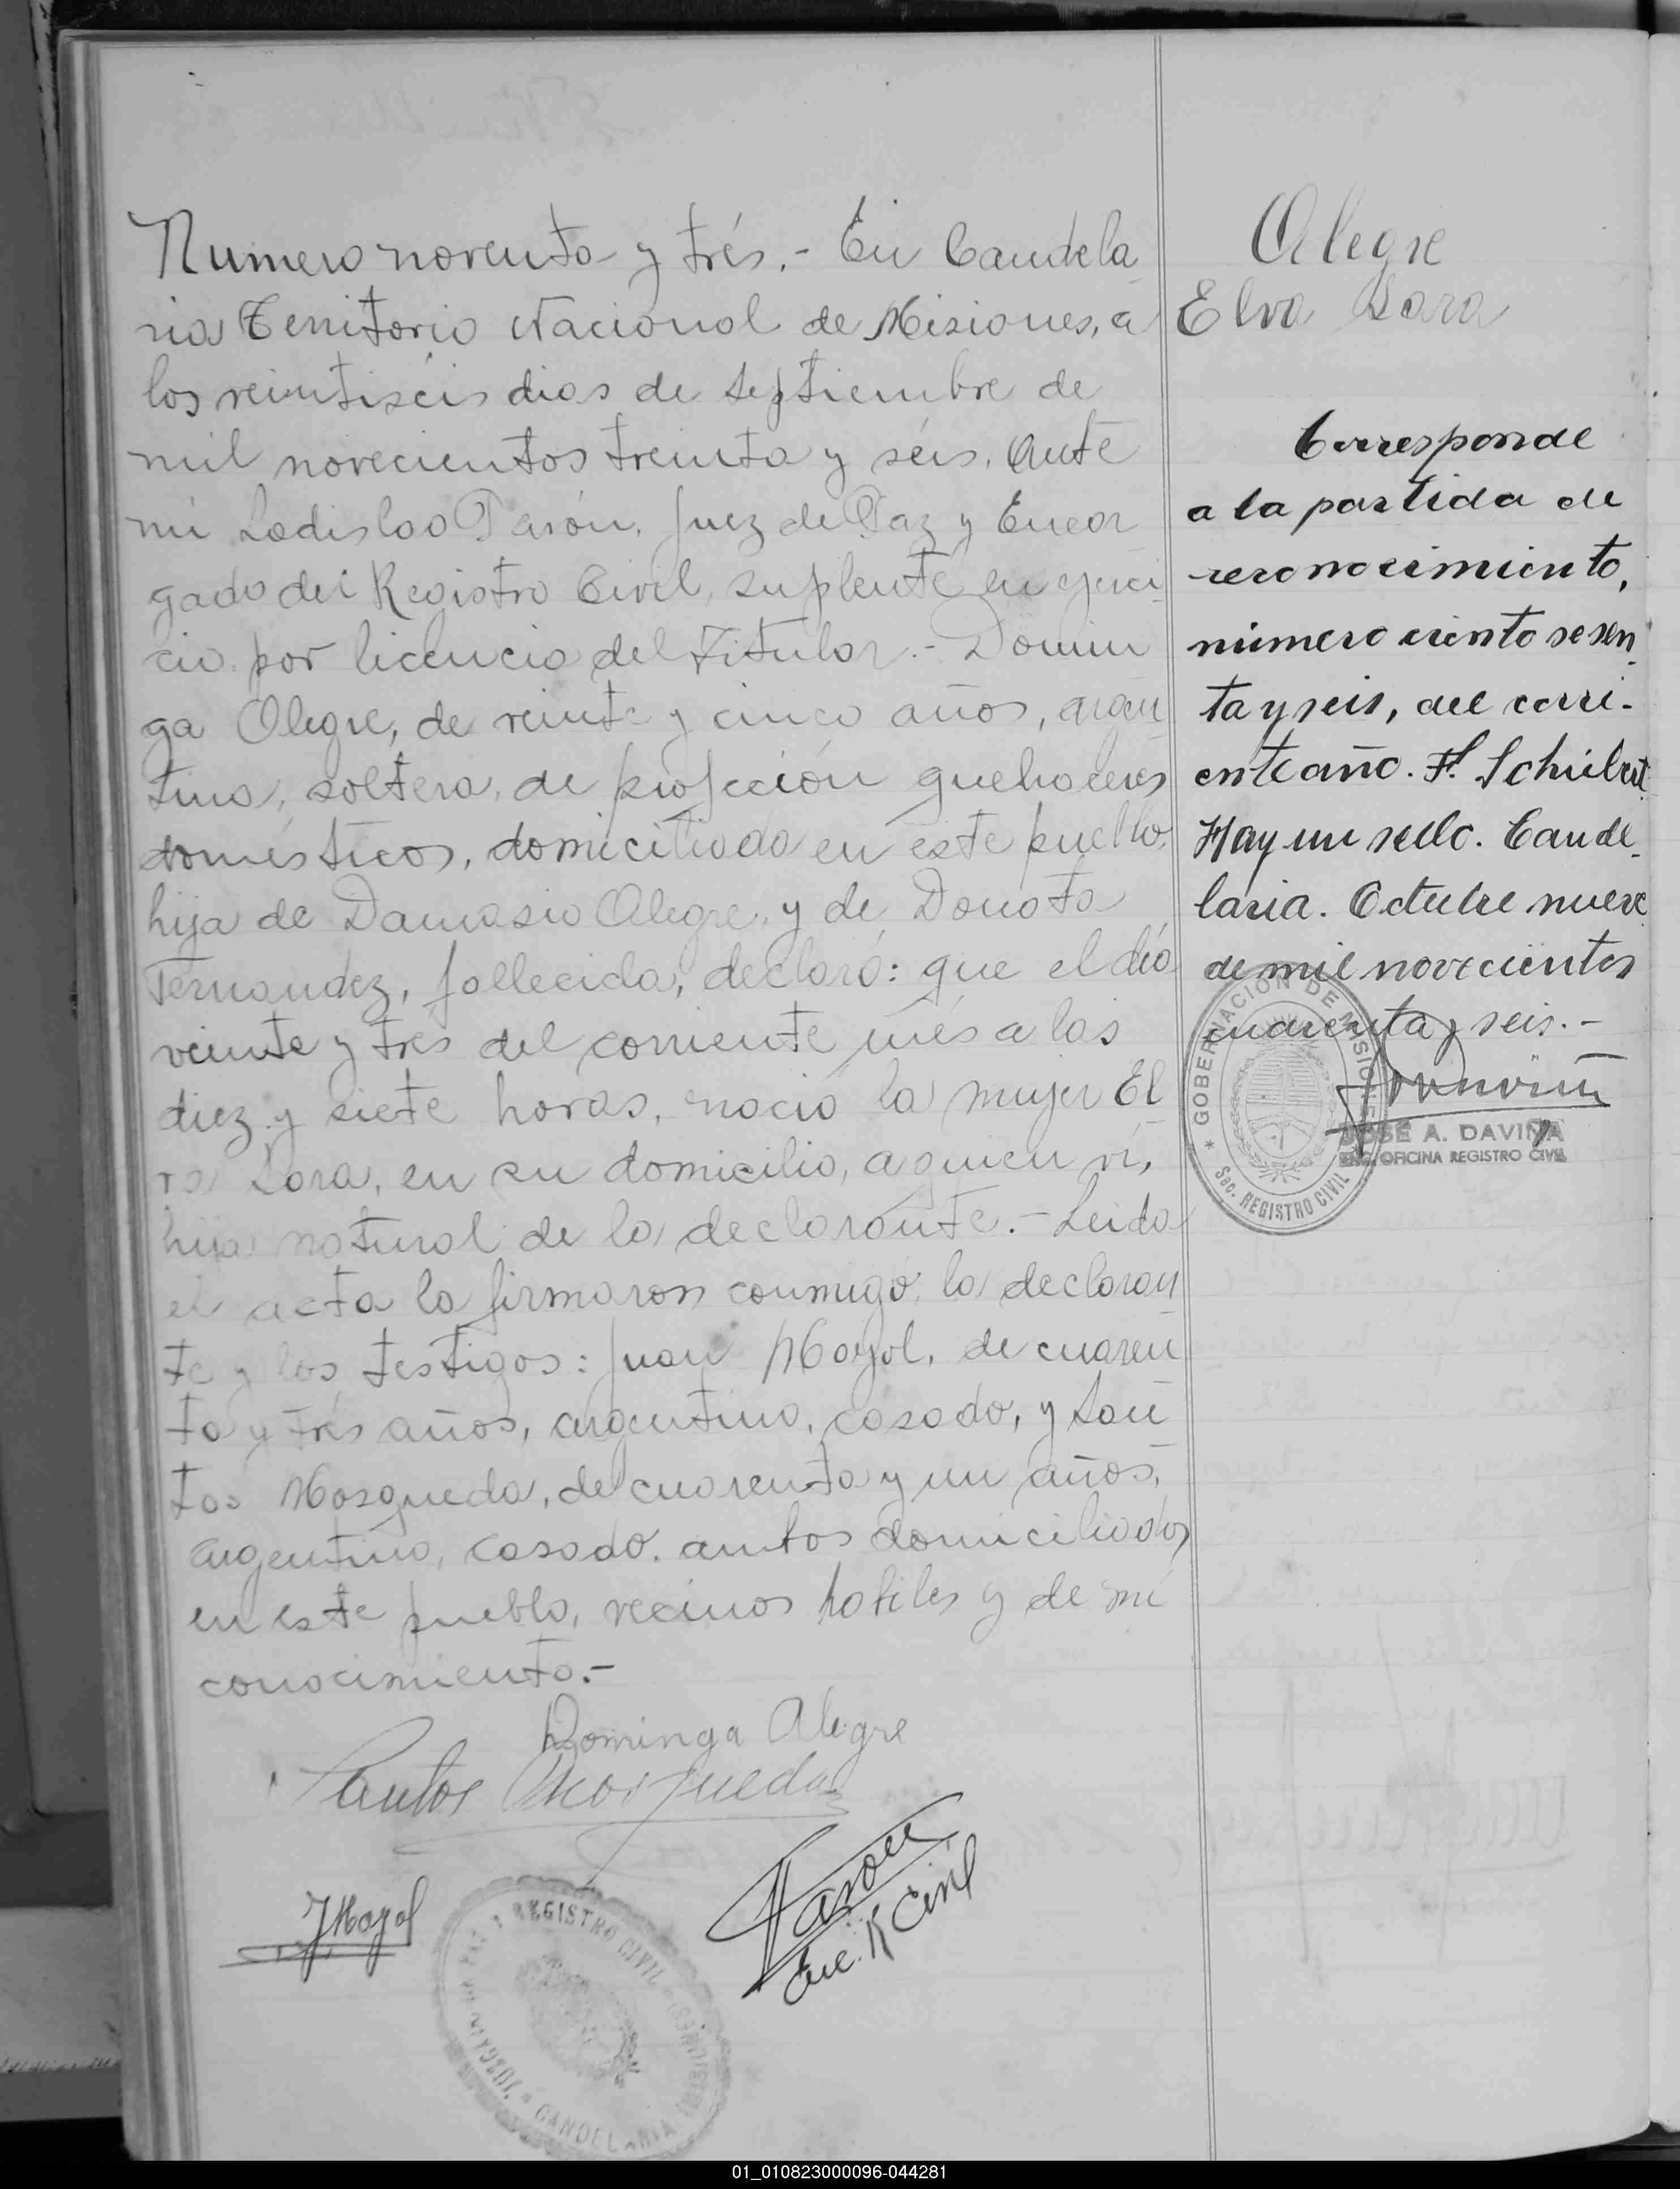 Numero noventa y trés.- En Candela
ria Territorio Nacional de Misiones, a
los veintiseis dias de Septiembre de
mil novecientos treinta y séis, Ante
mi Ladislao Parón, Juez de Paz y Encar
gado del Registro Civil, suplente en ejerci
cio por licencia del Titular.- Domin
ga Alegre, de veinte y cinco años, argen
tina, soltera, de profección quehaceres
domésticos, domiciliada en este pueblo,
hija de Damasio Alegre, y de Donata
Fernandez, fallecida, declaró: que el día
veinte y tres del corriente més a las
diez y siete horas, nació la mujer El
va Sara, en su domicilio, a quien vi,
hija natural de la declarante.- Leida
el acta la firmaron conmigo, la declaran
te y los testigos: Juan Mayol, de cuaren
ta y trés años, argentino, casado, y San
tos Mosqueda, de cuarenta y un años,
argentino, casado, ambos domiciliados
en este pueblo, vecinos habiles y de mi
conocimiento.-
Dominga Alegre
Santos Mosqueda
JMayol
Parón
Enc. R Civil
REGISTRO CIVIL
JUZGADO DE PAZ
CANDELARIA (MISIONES)
Alegre
Elva Sara
Corresponde
a la partida de
reconocimiento,
número ciento sesen
ta y seis, del corri-
ente año. F. Schubert
Hay un sello. Cande-
laria. Octubre nueve
de mil novecientos
cuarenta y seis.-
GOBERNACION DE MISIONES
Sec. REGISTRO CIVIL
JOSE A. DAVIÑA
ENC. OFICINA REGISTRO CIVIL
01_010823000096-044281